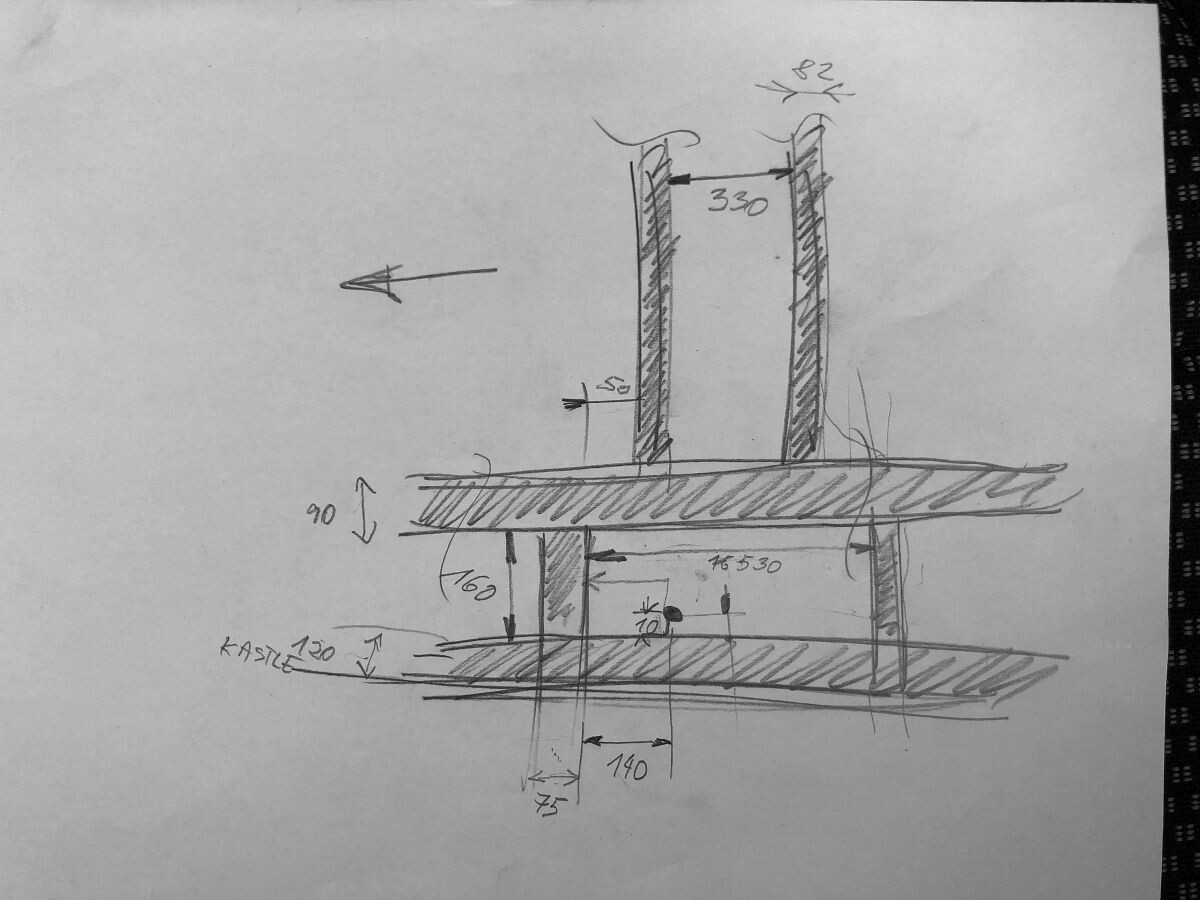 82
330
50
90
530
160
10
KASTLE 120
140
75